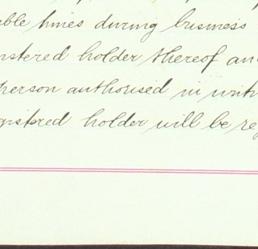 able times during business
istered holder thereof an
person authorised in writ
egistered holder will be re